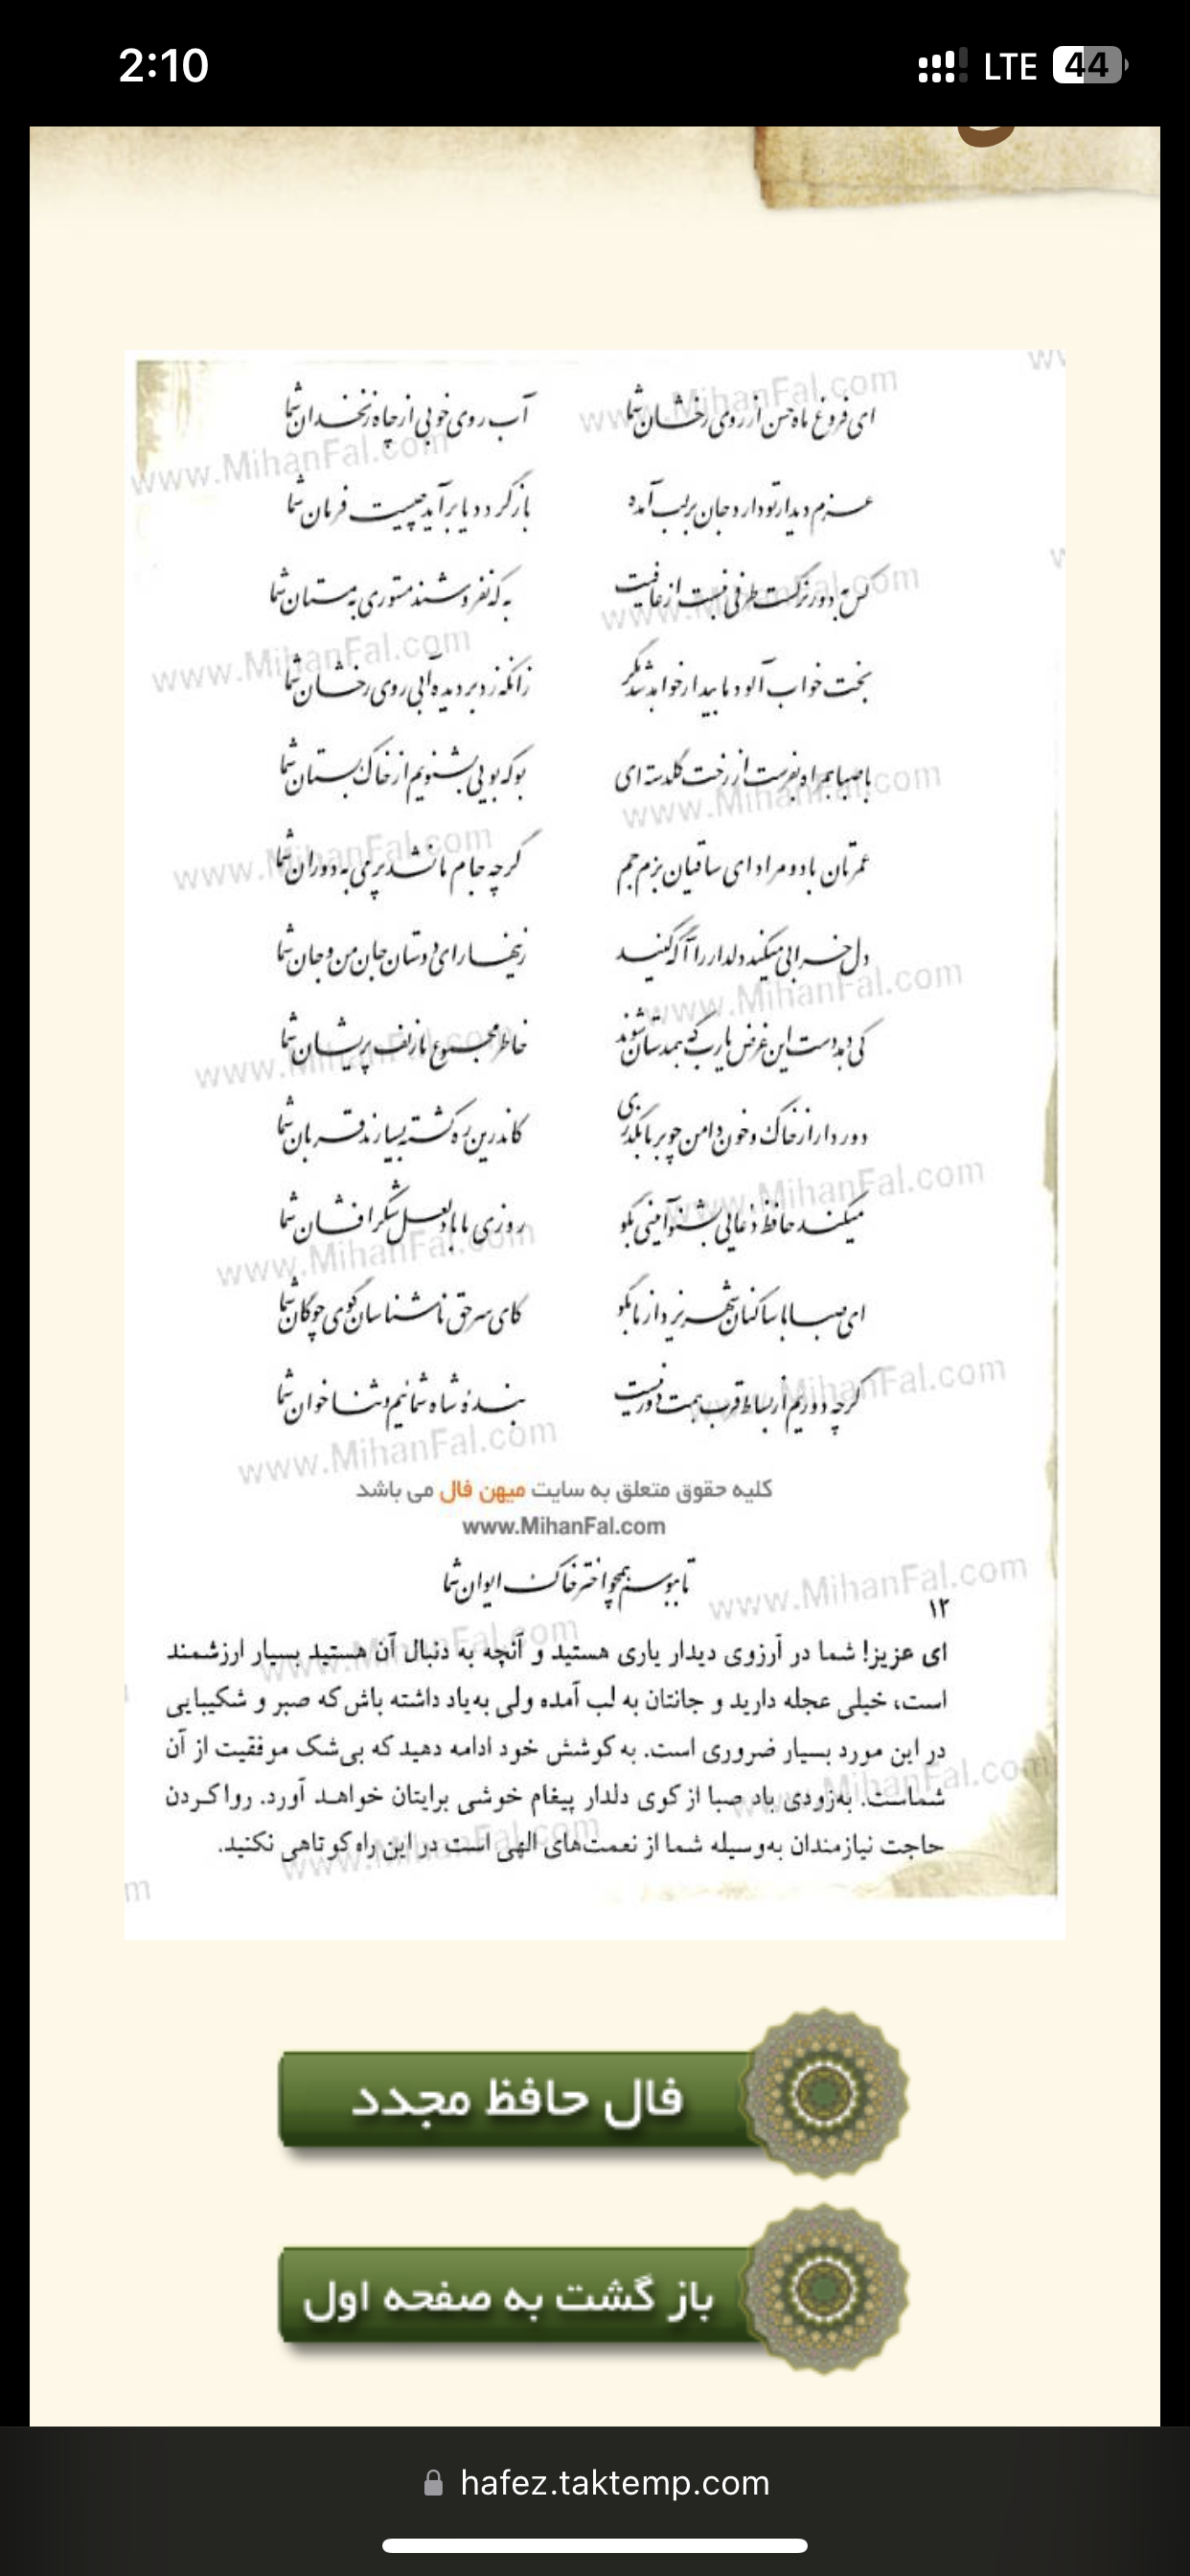 2:10
LTE 44
ای فروغ ماه حسن از روی رخشان شما آب روی خوبی از چاه زنخدان شما
عزم دیدار تو دارد جان بر لب آمده باز گردد یا برآید چیست فرمان شما
کس به دور نرگست طرفی نبست از عافیت به که نفروشند مستوری به مستان شما
بخت خواب آلود ما بیدار خواهد شد مگر زانکه زد بر دیده آبی روی رخشان شما
با صبا همراه بفرست از رخت گلدسته ای بو که بویی بشنویم از خاک بستان شما
عمرتان باد و مراد ای ساقیان بزم جم گرچه جام ما نشد پر می به دوران شما
دل خرابی میکند دلدار را آگه کنید زینهار ای دوستان جان من و جان شما
کی دهد دست این غرض یا رب که همدستان شوند خاطر مجموع ما زلف پریشان شما
دور دار از خاک و خون دامن چو بر ما بگذری کاندرین ره کشته بسیارند قربان شما
میکند حافظ دعائی بشنو آمینی بگو روزی ما باد لعل شکر افشان شما
ای صبا با ساکنان شهر یزد از ما بگو کای سر حق ناشناسان گوی چوگان شما
گرچه دوریم از بساط قرب همت دور نیست بنده شاه شمائیم و ثنا خوان شما
کلیه حقوق متعلق به سایت میهن فال می باشد
www.MihanFal.com
تا ببوسم همچو اختر خاک ایوان شما
۱۲
ای عزیز! شما در آرزوی دیدار یاری هستید و آنچه به دنبال آن هستید بسیار ارزشمند
است، خیلی عجله دارید و جانتان به لب آمده ولی به‌یاد داشته باش که صبر و شکیبایی
در این مورد بسیار ضروری است. به کوشش خود ادامه دهید که بی‌شک موفقیت از آن
شماست. به‌زودی باد صبا از کوی دلدار پیغام خوشی برایتان خواهد آورد. روا کردن
حاجت نیازمندان به‌وسیله شما از نعمت‌های الهی است در این راه کوتاهی نکنید.
فال حافظ مجدد
باز گشت به صفحه اول
hafez.taktemp.com